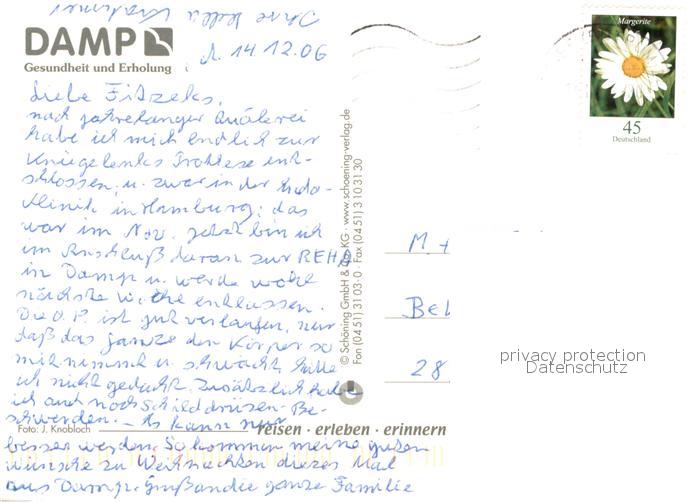 DAMP
Gesundheit und Erholung
14.12.06
Liebe Fitzeks,
nach jahrelanger Quälerei
habe ich mich endlich zur
Kniegelenks Prothese ent-
schlossen, u. zwar in der Endo-
Klinik in Hamburg; das
war im Nov. Jetzt bin ich
im Anschluß daran zur REHA
in Damp u. werde wohl
nächste Woche entlassen.
Die O.P. ist gut verlaufen, nur
daß das ganze den Körper so
mitnimmt u. schwächt hätte
ich nicht gedacht. Zusätzlich habe
ich auch noch Schilddrüsen-Be-
schwerden. - Es kann nur
besser werden. So kommen meine guten
Wünsche zu Weihnachten dieses Mal
aus Damp. Grüße an die ganze Familie
Ihre
Foto: J. Knobloch
reisen · erleben · erinnern
© Schöning GmbH & Co. KG · www.schoening-verlag.de
Fon (04 51) 3 10 3-0 · Fax (04 51) 3 10 31 30
Margerite
45
Deutschland
M. +
Bel
28
privacy protection
Datenschutz